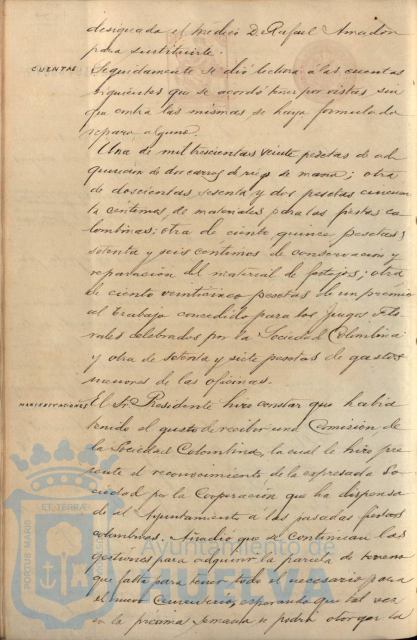 designado el médico D. Rafael Amador
para sustituirle.
CUENTAS
Seguidamente se dió lectura á las cuentas
siguientes que se acordó tener por vistas sin
que contra las mismas se haya formulado
reparo alguno.
Una de mil trescientas veinte pesetas de ad-
quisición de dos carros de riego de mano; otra
de doscientas sesenta y dos pesetas cincuen
ta céntimos de materiales para las fiestas co
lombinas; otra de ciento quince pesetas
setenta y seis céntimos de conservación y
reparación del material de festejos; otra
de ciento veinticinco pesetas de un premio
al trabajo concedido para los Juegos Flo-
rales celebrados por la Sociedad Colombina
y otra de setenta y siete pesetas de gastos
menores de las oficinas.
MANIFESTACIONES
El Sr. Presidente hizo constar que había
tenido el gusto de recibir una Comisión de
la Sociedad Colombina, la cual le hizo pre
sente el reconocimiento de la expresada So
ciedad por la Cooperación que ha dispensa
do el Ayuntamiento á las pasadas fiestas
colombinas. Añadió que se continúan las
gestiones para adquirir la parcela de terreno
que falta para tener todo el necesario para
el nuevo Cementerio, esperando que tal vez
en la próxima semana se podrá otorgar la
PORTUS MARIS
ET TERRÆ
CUSTODIA
Ayuntamiento de
HUELVA